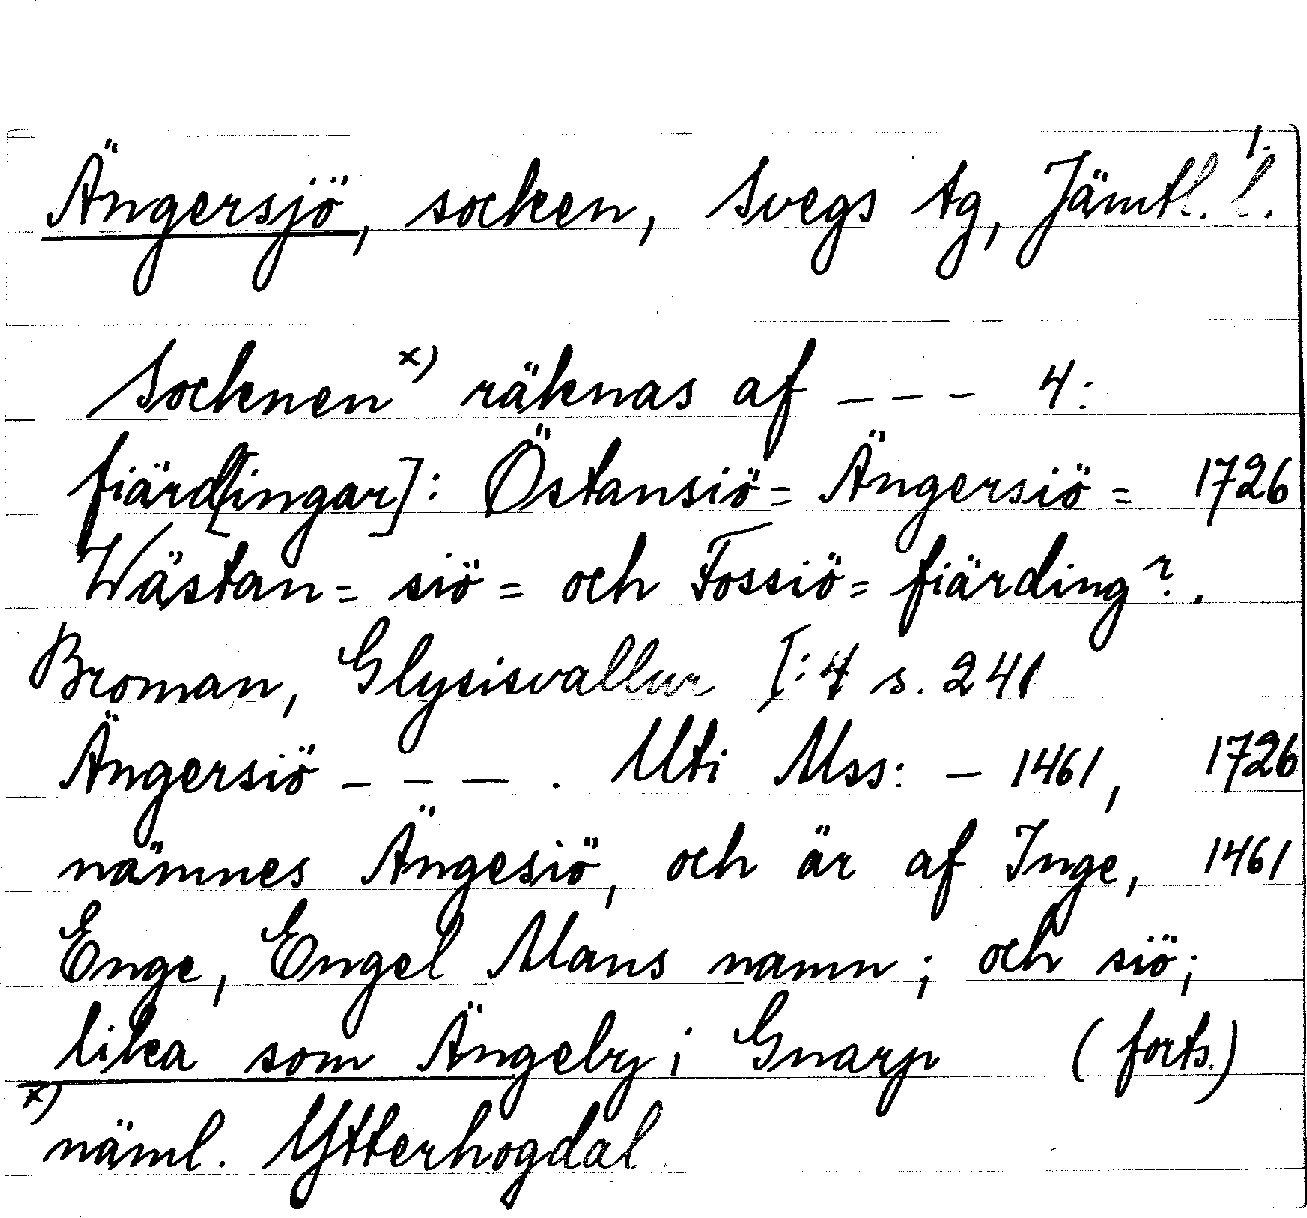 1.
Ängersjö, socken, Svegs tg, Jämtl. l.
Socknen x) räknas af - - - 4:
fiärd[ingar]: Östansiö= Ängersiö= 1726
Wästan= siö= och Fossiö= fiärding r.
Broman, Glysisvallur I:4 s. 241
Ängersiö - - - . Uti Mss: - 1461, 1726
nämnes Ängesiö, och är af Inge, 1461
Enge, Engel Mans namn; och siö;
lika som Ängeby i Gnarp (forts.)
x) näml. Ytterhogdal